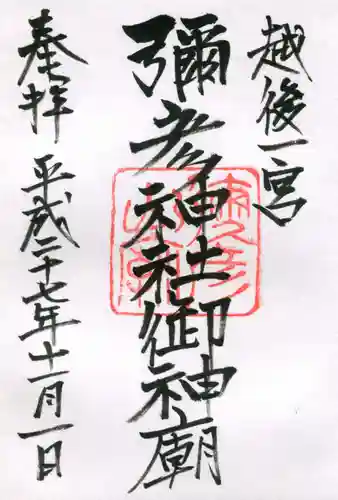 越後一宮
彌彦神社御神廟
奉拝
平成二十七年十一月一日